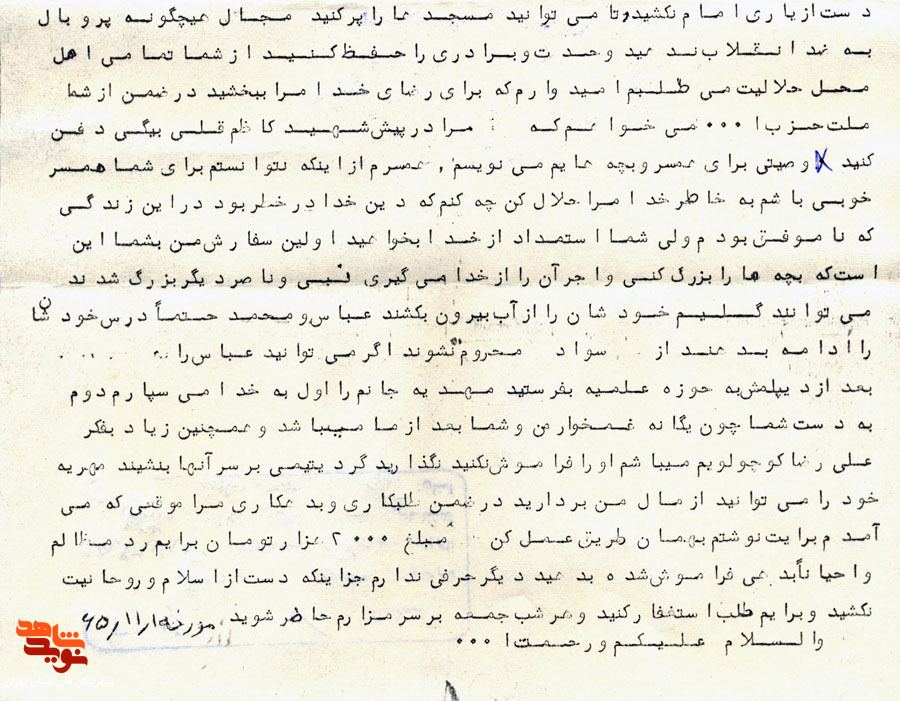 دست از یاری امام نکشید و تا می توانید مسجد ها را پر کنید مجال هیچگونه پر و بال
به ضد انقلاب ندهید وحدت و برادری را حفظ کنید از شما تمامی اهل
محل حلالیت می طلبم امیدوارم که برای رضای خدا مرا ببخشید در ضمن از شما
ملت حزب ا ۰۰۰ می خواهم که : مرا در پیش شهید کاظم قلی بیگی دفن
کنید وصیتی برای همسر و بچه هایم می نویسم , همسرم از اینکه نتوانستم برای شما همسر
خوبی باشم به خاطر خدا مرا حلال کن چه کنم که دین خدا در خطر بود در این زندگی
که ناموفق بودم ولی شما استمداد از خدا بخواهید اولین سفارش من بشما این
است که بچه ها را بزرگ کنی و اجر آن را از خدا می گیری نبی و ناصر دیگر بزرگ شدند
می توانند گلیم خودشان را از آب بیرون بکشند عباس و محمد حتماً درس خودشان
را ادامه بدهند از سواد محروم نشوند اگر می توانید عباس را
بعد از دیپلمش به حوزه علمیه بفرستید مهدیه جانم را اول به خدا می سپارم دوم
به دست شما چون یگانه غمخوار من و شما بعد از ما میباشد و همچنین زیاد بفکر
علی رضا کوچولویم میباشم او را فراموش نکنید نگذارید گرد یتیمی بر سر آنها بنشیند مهریه
خود را می توانید از مال من بردارید در ضمن طلبکاری و بدهکاری مرا موقعی که می
آمدم برایت نوشتم بهمان طریق عمل کن مبلغ ۲۰۰۰ هزار تومان برایم رد مظالم
و احیاناً بدهی فراموش شده بدهید دیگر حرفی ندارم جز اینکه دست از اسلام و روحانیت
نکشید و برایم طلب استغفار کنید و هر شب جمعه بر سر مزارم حاضر شوید مورخه ۶۵/۱۱/۱
والسلام علیکم و رحمت ا ۰۰۰
نوید شاهد